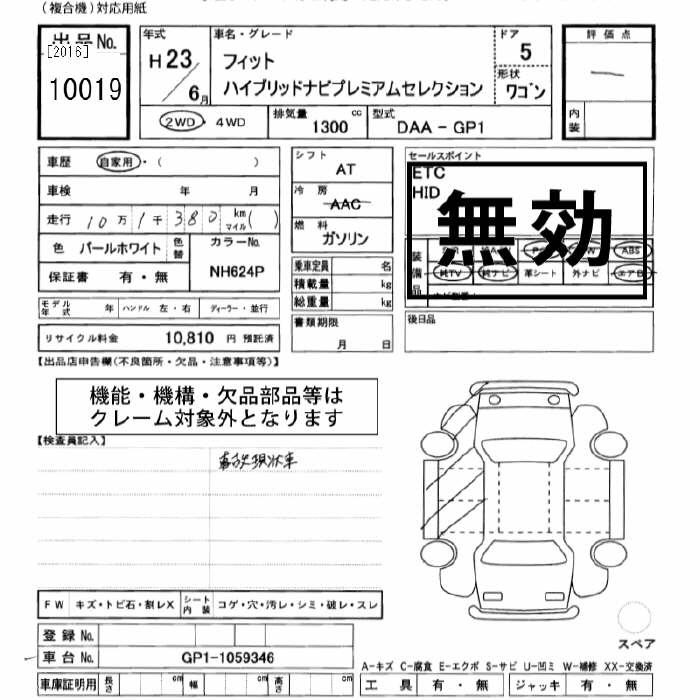 (複合機)対応用紙
出品No.
[2016]
10019
年式
H23
6月
車名・グレード
フィット
ハイブリッドナビプレミアムセレクション
ドア
5
形状
ワゴン
評価点
内装
2WD・4WD
排気量
1300 cc
型式
DAA-GP1
車歴 自家用・( )
車検 年 月
走行 10万1千380 km マイル ( )
色 パールホワイト 色替
カラーNo.
NH624P
保証書 有・無
シフト
AT
冷房
AAC
燃料
ガソリン
乗車定員 名
積載量 kg
総重量 kg
セールスポイント
ETC
HID
無効
装備品
ABS
純TV 純ナビ 革シート 外ナビ エアB
モデル年式 年 ハンドル 左・右 ディーラー・並行
リサイクル料金 10,810 円 預託済
書類期限
月 日
後日品
【出品店申告欄(不良箇所・欠品・注意事項等)】
機能・機構・欠品部品等は
クレーム対象外となります
【検査員記入】
事故現状車
FW キズ・トビ石・割レX シート内装 コゲ・穴・汚レ・シミ・破レ・スレ
登録No.
車台No. GP1-1059346
車庫証明用 長さ cm 幅 cm 高さ cm
スペア
A-キズ C-腐食 E-エクボ S-サビ U-凹ミ W-補修 XX-交換済
工具 有・無 ジャッキ 有・無